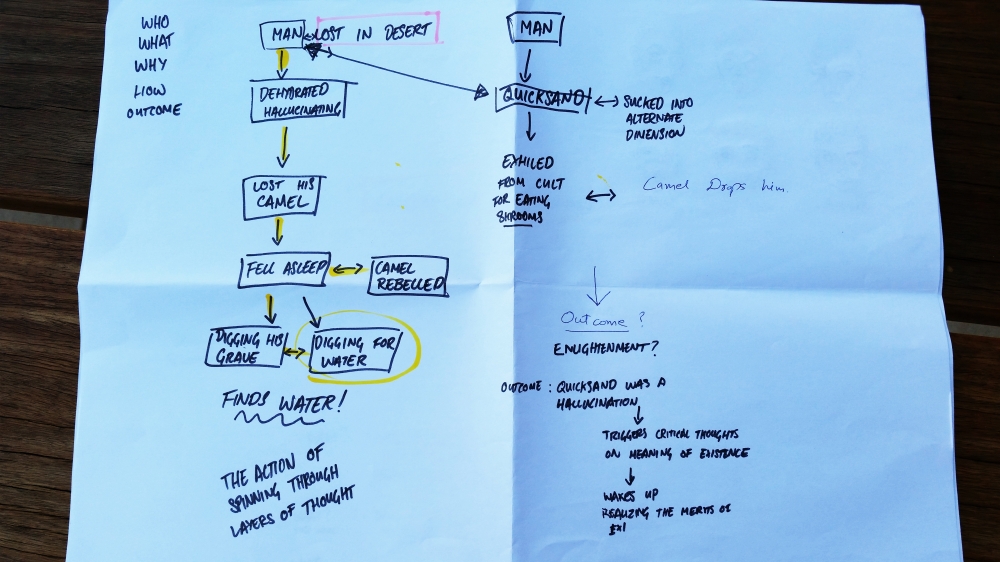 WHO
WHAT
WHY
HOW
OUTCOME
MAN
LOST IN DESERT
DEHYDRATED
HALLUCINATING
LOST HIS
CAMEL
FELL ASLEEP
CAMEL
REBELLED
DIGGING HIS
GRAVE
DIGGING FOR
WATER
FINDS WATER!
THE ACTION OF
SPINNING THROUGH
LAYERS OF THOUGHT
MAN
QUICKSAND
SUCKED INTO
ALTERNATE
DIMENSION
EXHILED
FROM CULT
FOR EATING
SHROOMS
Camel Drops him.
Outcome?
ENLIGHTENMENT?
OUTCOME: QUICKSAND WAS A
HALLUCINATION
TRIGGERS CRITICAL THOUGHTS
ON MEANING OF EXISTENCE
WAKES UP
REALIZING THE MERITS OF
EXI